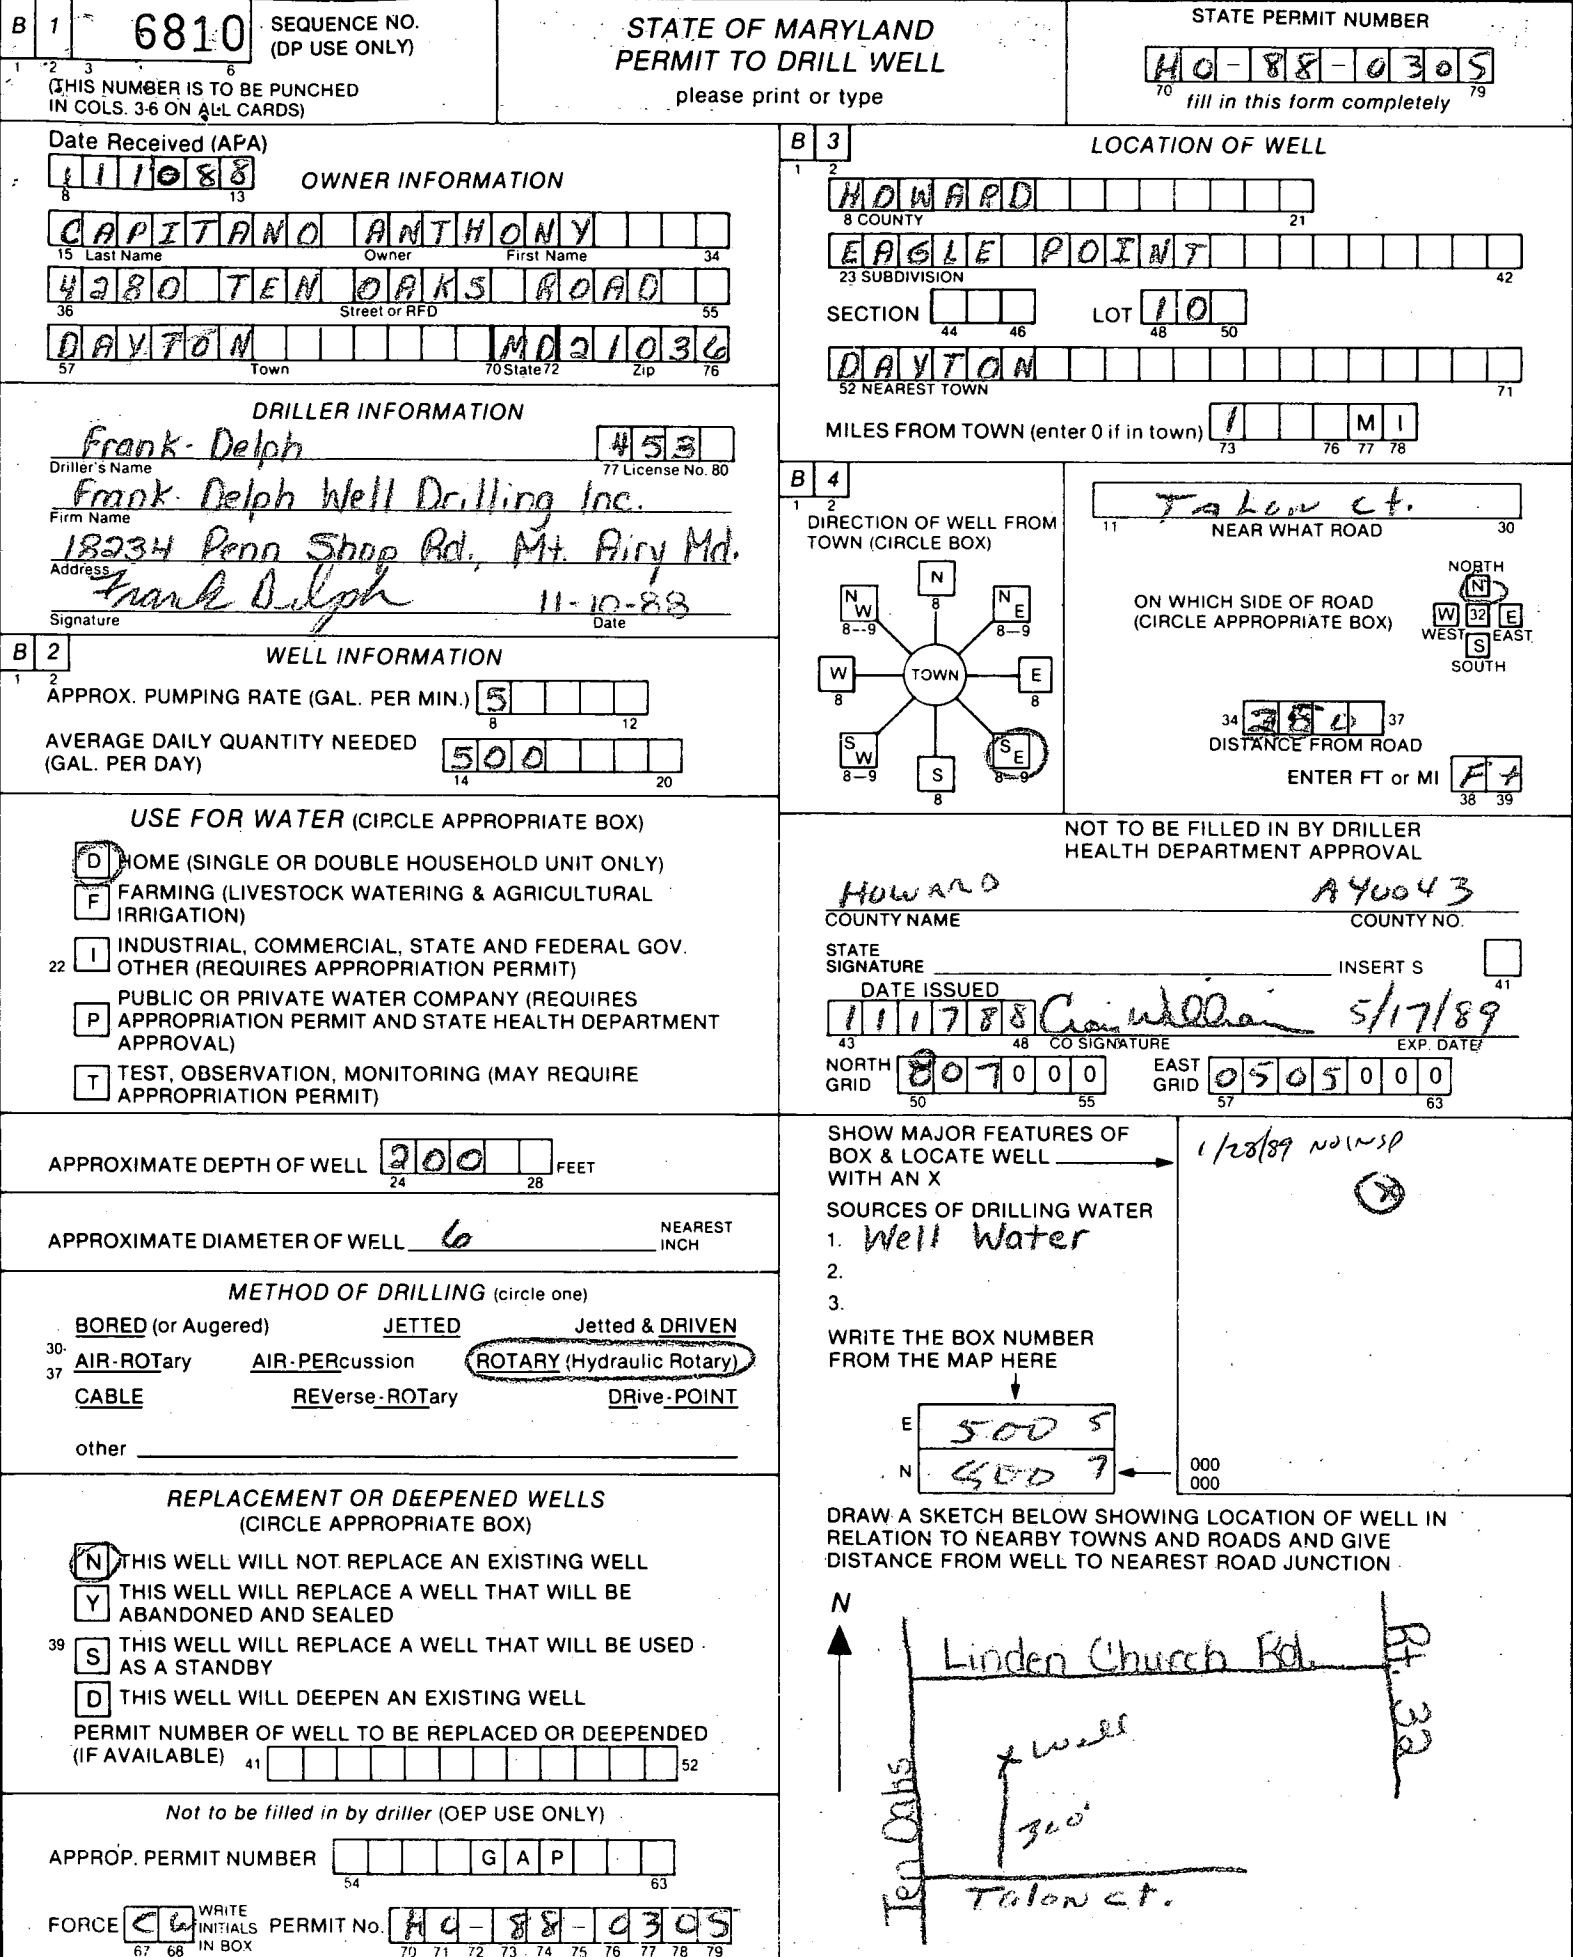 B 1 6810 SEQUENCE NO.
(DP USE ONLY)
1 2 3 6
(THIS NUMBER IS TO BE PUNCHED
IN COLS. 3-6 ON ALL CARDS)
STATE OF MARYLAND
PERMIT TO DRILL WELL
please print or type
STATE PERMIT NUMBER
HO-88-0305
70 79
fill in this form completely
Date Received (APA)
111088
8 13
OWNER INFORMATION
CAPITANO ANTHONY
15 Last Name Owner First Name 34
4280 TEN OAKS ROAD
36 Street or RFD 55
DAYTON MD 21036
57 Town 70 State 72 Zip 76
DRILLER INFORMATION
Frank Delph 453
Driller's Name 77 License No. 80
Frank Delph Well Drilling Inc.
Firm Name
18234 Penn Shop Rd., Mt. Airy Md.
Address
Frank Delph 11-10-88
Signature Date
B 2 WELL INFORMATION
1 2
APPROX. PUMPING RATE (GAL. PER MIN.) 5
8 12
AVERAGE DAILY QUANTITY NEEDED
(GAL. PER DAY) 500
14 20
USE FOR WATER (CIRCLE APPROPRIATE BOX)
D HOME (SINGLE OR DOUBLE HOUSEHOLD UNIT ONLY)
F FARMING (LIVESTOCK WATERING & AGRICULTURAL
IRRIGATION)
22 I INDUSTRIAL, COMMERCIAL, STATE AND FEDERAL GOV.
OTHER (REQUIRES APPROPRIATION PERMIT)
P PUBLIC OR PRIVATE WATER COMPANY (REQUIRES
APPROPRIATION PERMIT AND STATE HEALTH DEPARTMENT
APPROVAL)
T TEST, OBSERVATION, MONITORING (MAY REQUIRE
APPROPRIATION PERMIT)
APPROXIMATE DEPTH OF WELL 200 FEET
24 28
APPROXIMATE DIAMETER OF WELL 6 NEAREST
INCH
METHOD OF DRILLING (circle one)
BORED (or Augered) JETTED Jetted & DRIVEN
30-
37
AIR-ROTary AIR-PERcussion ROTARY (Hydraulic Rotary)
CABLE REVerse-ROTary DRive-POINT
other
REPLACEMENT OR DEEPENED WELLS
(CIRCLE APPROPRIATE BOX)
N THIS WELL WILL NOT REPLACE AN EXISTING WELL
Y THIS WELL WILL REPLACE A WELL THAT WILL BE
ABANDONED AND SEALED
39 S THIS WELL WILL REPLACE A WELL THAT WILL BE USED
AS A STANDBY
D THIS WELL WILL DEEPEN AN EXISTING WELL
PERMIT NUMBER OF WELL TO BE REPLACED OR DEEPENDED
(IF AVAILABLE) 41 52
Not to be filled in by driller (OEP USE ONLY)
APPROP. PERMIT NUMBER GAP
54 63
FORCE WRITE
INITIALS
IN BOX
67 68
PERMIT No. HO-88-0305
70 71 72 73 74 75 76 77 78 79
B 3 LOCATION OF WELL
1 2
HOWARD
8 COUNTY 21
EAGLE POINT
23 SUBDIVISION 42
SECTION LOT 10
44 46 48 50
DAYTON
52 NEAREST TOWN 71
MILES FROM TOWN (enter 0 if in town) 1 MI
73 76 77 78
B 4
1 2
DIRECTION OF WELL FROM
TOWN (CIRCLE BOX)
N
8
NW NE
8-9 8-9
W TOWN E
8 8
SW SE
8-9 8-9
S
8
Talon ct.
11 NEAR WHAT ROAD 30
ON WHICH SIDE OF ROAD
(CIRCLE APPROPRIATE BOX)
NORTH
N
W 32 E
WEST EAST
S
SOUTH
34 280 37
DISTANCE FROM ROAD
ENTER FT or MI Ft
38 39
NOT TO BE FILLED IN BY DRILLER
HEALTH DEPARTMENT APPROVAL
HOWARD A40043
COUNTY NAME COUNTY NO.
STATE
SIGNATURE INSERT S
41
DATE ISSUED
111788 5/17/89
43 48 CO SIGNATURE EXP. DATE
NORTH
GRID 807000
50 55
EAST
GRID 0505000
57 63
SHOW MAJOR FEATURES OF
BOX & LOCATE WELL
WITH AN X
1/28/89 NO INSP
X
SOURCES OF DRILLING WATER
1. Well Water
2.
3.
WRITE THE BOX NUMBER
FROM THE MAP HERE
E 500 5
N 7
000
000
DRAW A SKETCH BELOW SHOWING LOCATION OF WELL IN
RELATION TO NEARBY TOWNS AND ROADS AND GIVE
DISTANCE FROM WELL TO NEAREST ROAD JUNCTION
N
Linden Church Rd.
Rt. 32
x Well
300'
Ten Oaks
Talon ct.